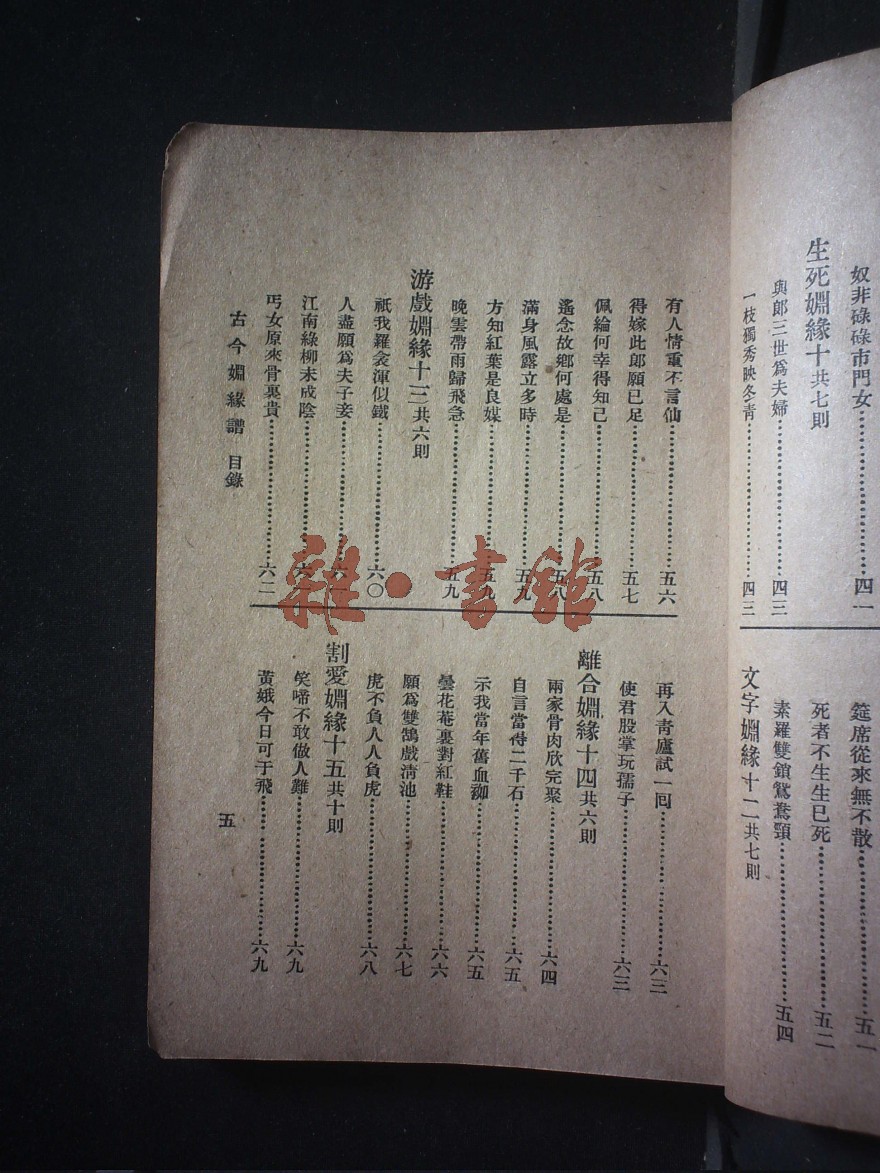 奴非碌碌市門女……四一
生死婣緣十共七則
與郎三世爲夫婦……四三
一枝獨秀映冬青……四三
筵席從來無不散……五一
死者不生生已死……五二
素羅雙鎖鴛鴦頸……五四
文字婣緣十二共七則
有人情重不言仙……五六
得嫁此郎願已足……五七
佩綸何幸得知己……五八
遙念故鄉何處是……五八
滿身風露立多時……五九
方知紅葉是良媒……五九
晚雲帶雨歸飛急……五九
游戲婣緣十三共六則
祇我羅衾渾似鐵……六〇
人盡願爲夫子妾……六一
江南綠柳未成陰……六
丐女原來骨裏貴……六二
再入青廬試一囘……六三
使君股掌玩孺子……六三
離合婣緣十四共六則
兩家骨肉欣完聚……六四
自言當得二千石……六五
示我當年舊血痂……六五
曇花菴裏對紅鞋……六六
願爲雙鵠戲淸池……六七
虎不負人人負虎……六八
割愛婣緣十五共十則
笑啼不敢做人難……六九
黃娥今日可于飛……六九
古今婣緣譜 目錄
五
雜·書館